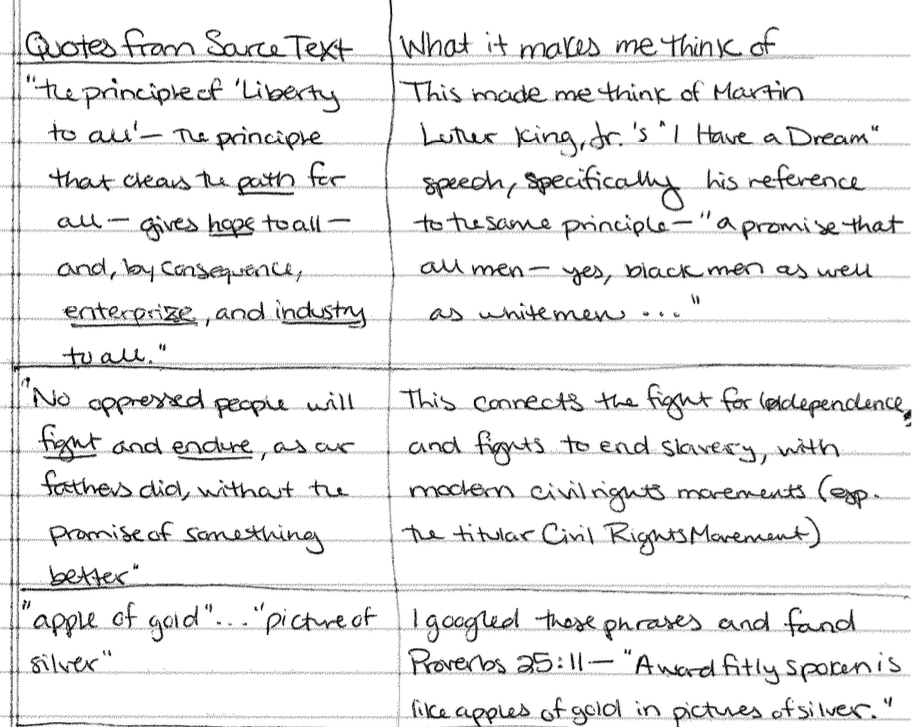 Quotes from Source Text
"the principle of 'Liberty
to all' — the principle
that clears the path for
all — gives hope to all —
and, by consequence,
enterprize, and industry
to all."
What it makes me think of
This made me think of Martin
Luther King, Jr.'s "I Have a Dream"
speech, specifically his reference
to the same principle — "a promise that
all men — yes, black men as well
as white men ..."
"No oppressed people will
fight and endure, as our
fathers did, without the
promise of something
better"
This connects the fight for Independence,
and fights to end slavery, with
modern civil rights movements (esp.
the titular Civil Rights Movement)
"apple of gold"..."picture of
silver"
I googled these phrases and found
Proverbs 25:11 — "A word fitly spoken is
like apples of gold in pictures of silver."